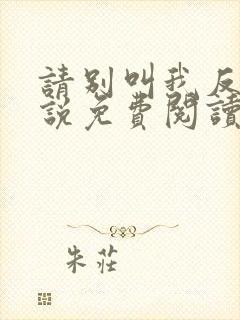 請別叫我反
說免費閱讀
朱莊